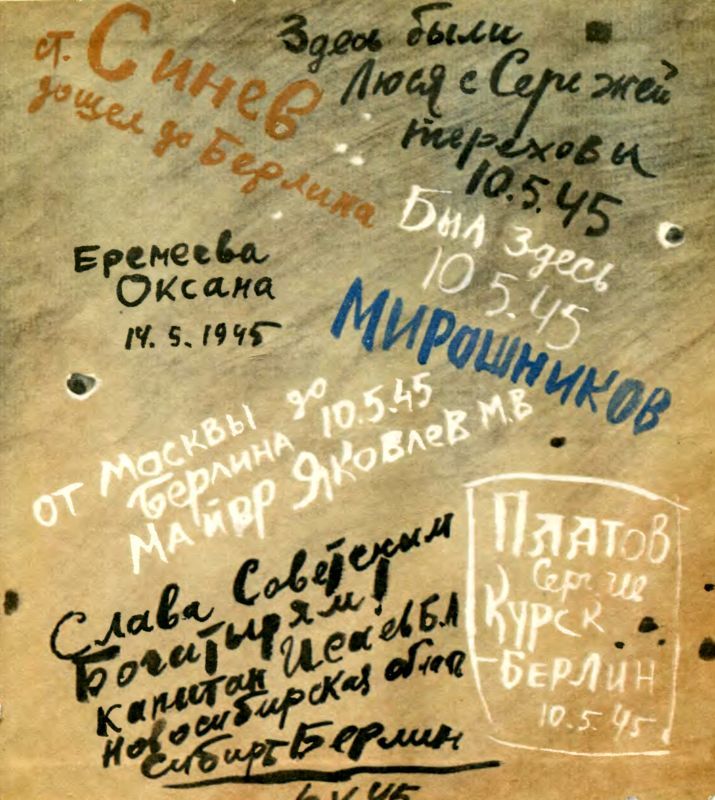 ст. Синев
дошел до Берлина
Здесь были
Люся с Сережей
Тереховы
10.5.45
Был здесь
10 5.45
Мирошников
Еремеева
Оксана
14. 5. 1945
от Москвы до
Берлина 10.5.45
майор Яковлев М.В
Слава Советским
Богатырям!
Капитан Исаев Б.А
Новосибирская
Сибирь Берлин
Платов
Сергей
Курск
-Берлин
10.5.45